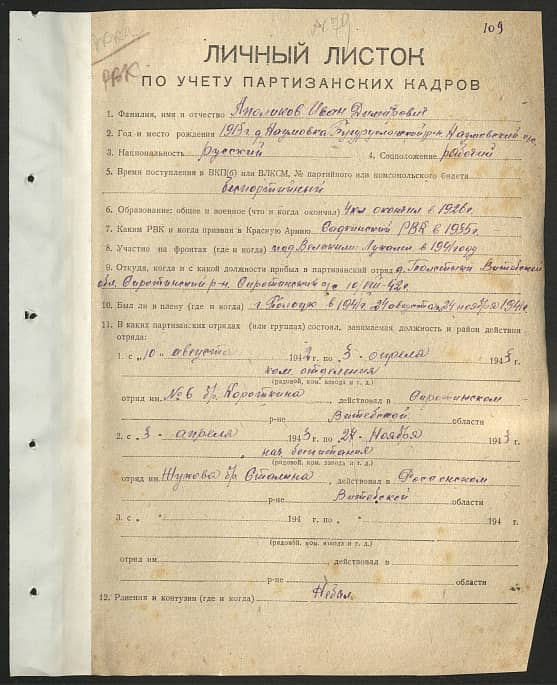 109
РВК
ЛИЧНЫЙ ЛИСТОК
ПО УЧЕТУ ПАРТИЗАНСКИХ КАДРОВ
1. Фамилия, имя и отчество Аполиков Иван Димитрович
2. Год и место рождения 1913 г. д. Наумовка
3. Национальность Русский 4. Соцположение рабочий
5. Время поступления в ВКП(б) или ВЛКСМ, № партийного или комсомольского билета
беспортийный
6. Образование: общее и военное (что и когда окончил) 4 кл окончил в 1926 г.
7. Каким РВК и когда призван в Красную Армию Садкинский РВК в 1935 г.
8. Участие на фронтах (где и когда) под Великими Луками в 1941 году
9. Откуда, когда и с какой должности прибыл в партизанский отряд д. Витебской
обл. Сиротинский р-н. Сиротинский с/с 10/VIII-42 г.
10. Был ли в плену (где и когда) г. Полоцк в 1941 г. 24 августа 24 ноября 1941 г.
11. В каких партизанских отрядах (или группах) состоял, занимаемая должность и район действия
отряда:
1. с „10" августа 1942 г. по „3" апреля 1943 г.
ком. отделения
(рядовой, ком. взвода и т. д.)
отряд им. № 6 бр. Короткина, действовал в Сиротинском
р-не Витебской области
2. с 3 апреля 1943 г. по 27 Ноября 1943 г.
(рядовой, ком. взвода и т. д.)
отряд им. Жукова бр. Сталина, действовал в
р-не Витебской области
3. с „ " 194 г. по „ " 194 г.
(рядовой, ком. взвода и т. д.)
отряд им. , действовал в
р-не области
12. Ранения и контузии (где и когда) Небыл.